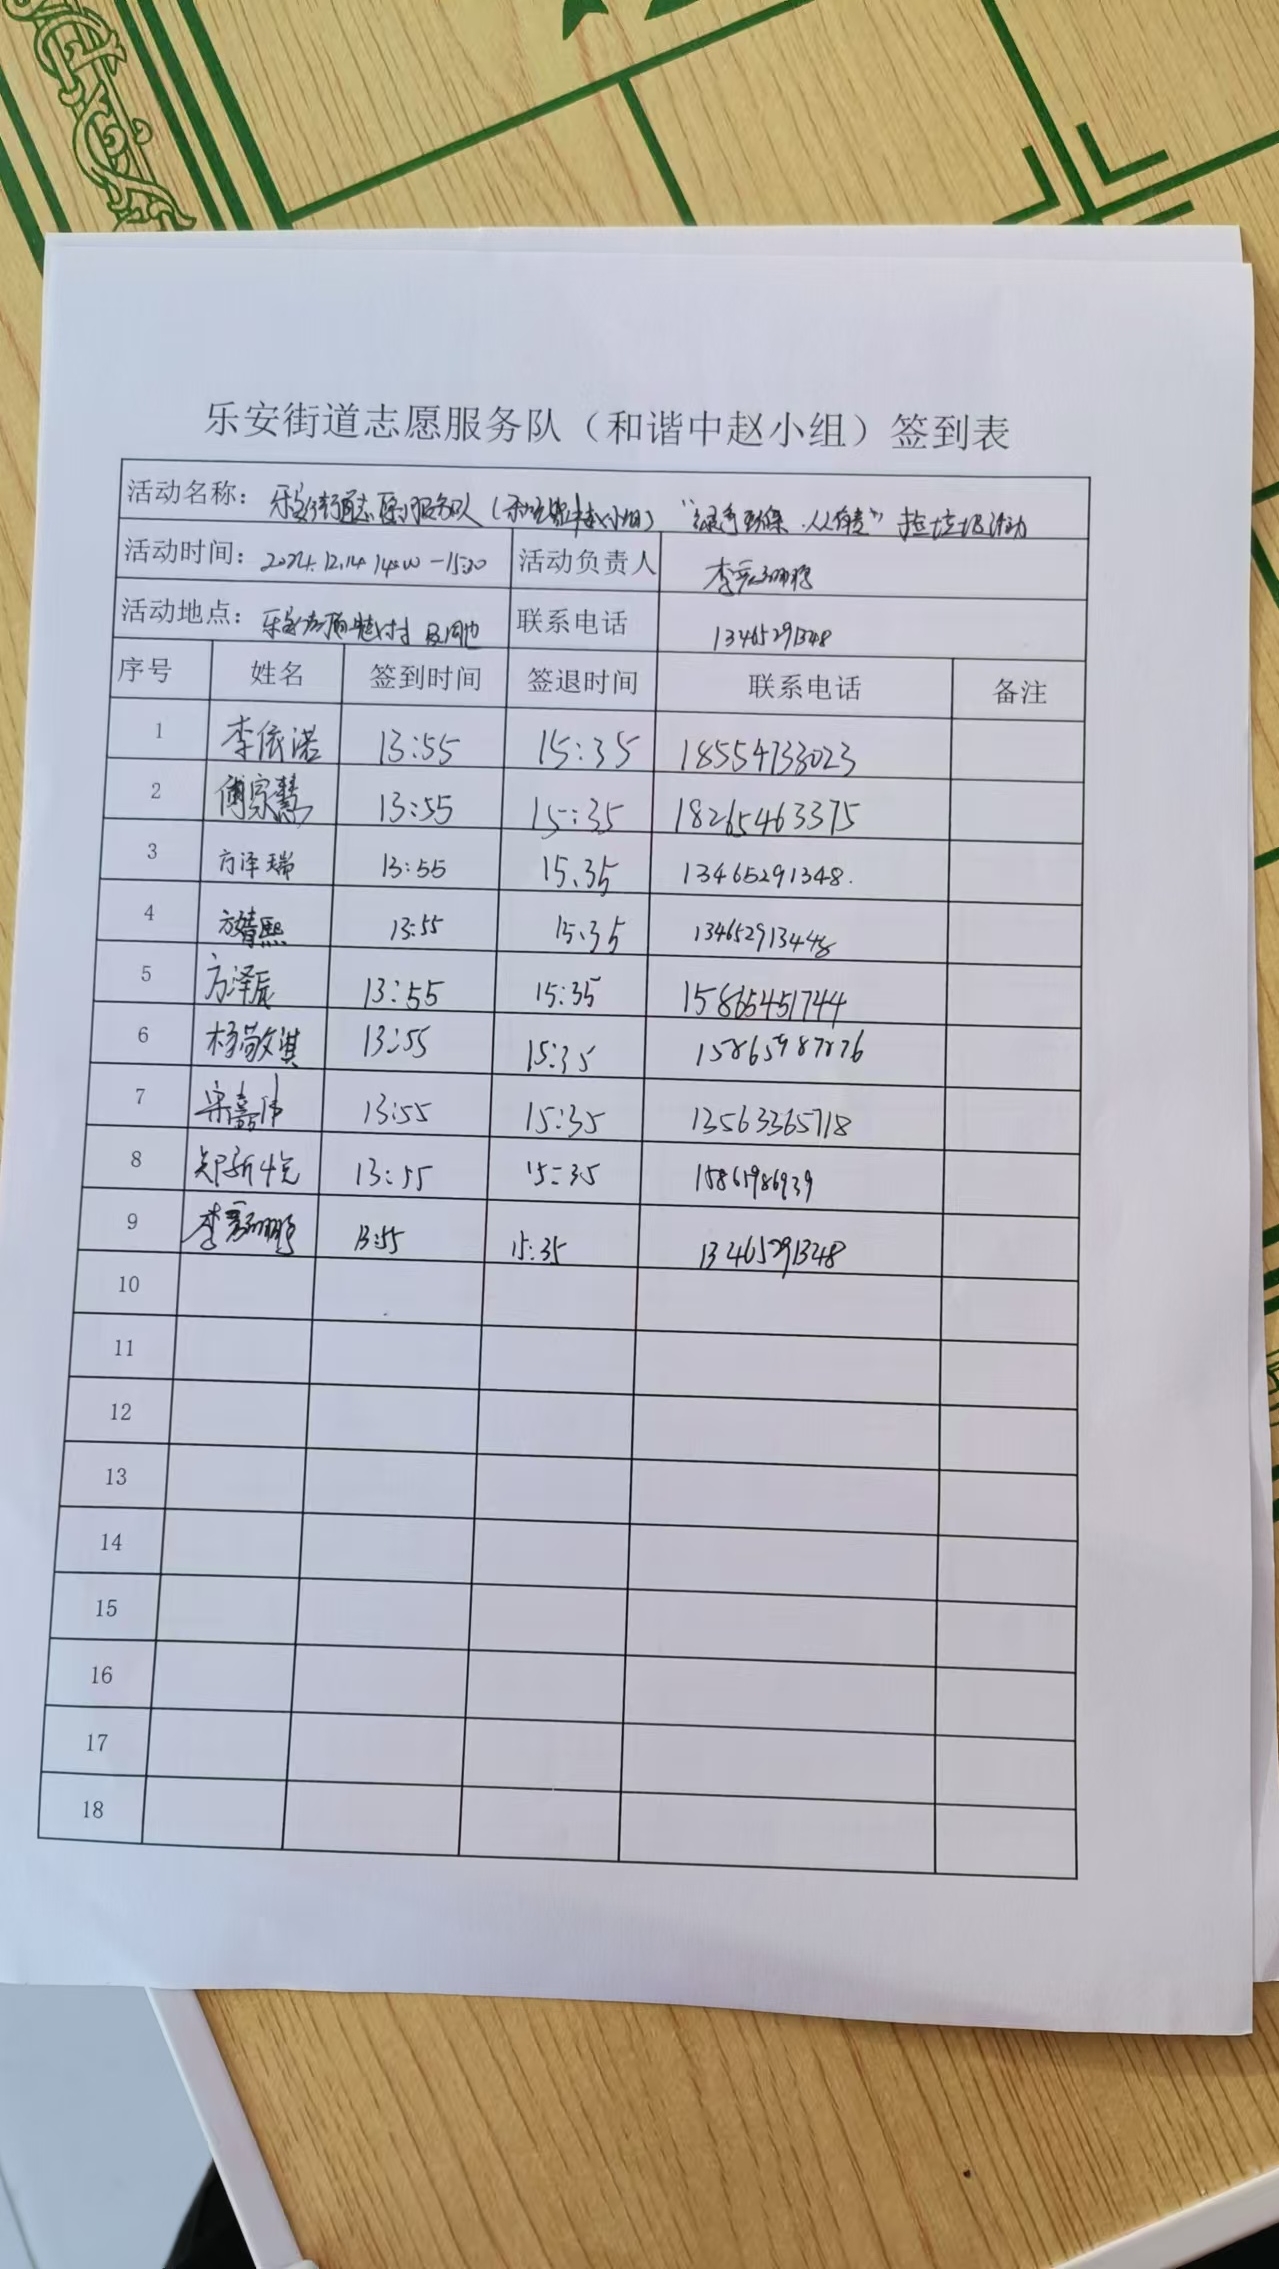 乐安街道志愿服务队（和谐中赵小组）签到表
活动名称： 乐安街道志愿服务队（和谐中赵小组）“绿色环保 人人有责”捡垃圾活动
活动时间： 2024.12.14 14:00-15:30 活动负责人 李
活动地点： 乐安 中赵村 及周边 联系电话 13465291348
序号 姓名 签到时间 签退时间 联系电话 备注
1 李依诺 13:55 15:35 18554733023
2 傅家慧 13:55 15:35 18265463375
3 方泽瑞 13:55 15.35 13465291348.
4 方婧熙 13:55 15.35
5 方泽辰 13:55 15:35 15865451744
6 杨敬淇 13:55 15:35 15865987876
7 宋嘉伟 13:55 15:35 13563365718
8 郑新悦 13:55 15:35 15865986939
9 李 13:55 15:35 13465291348
10
11
12
13
14
15
16
17
18